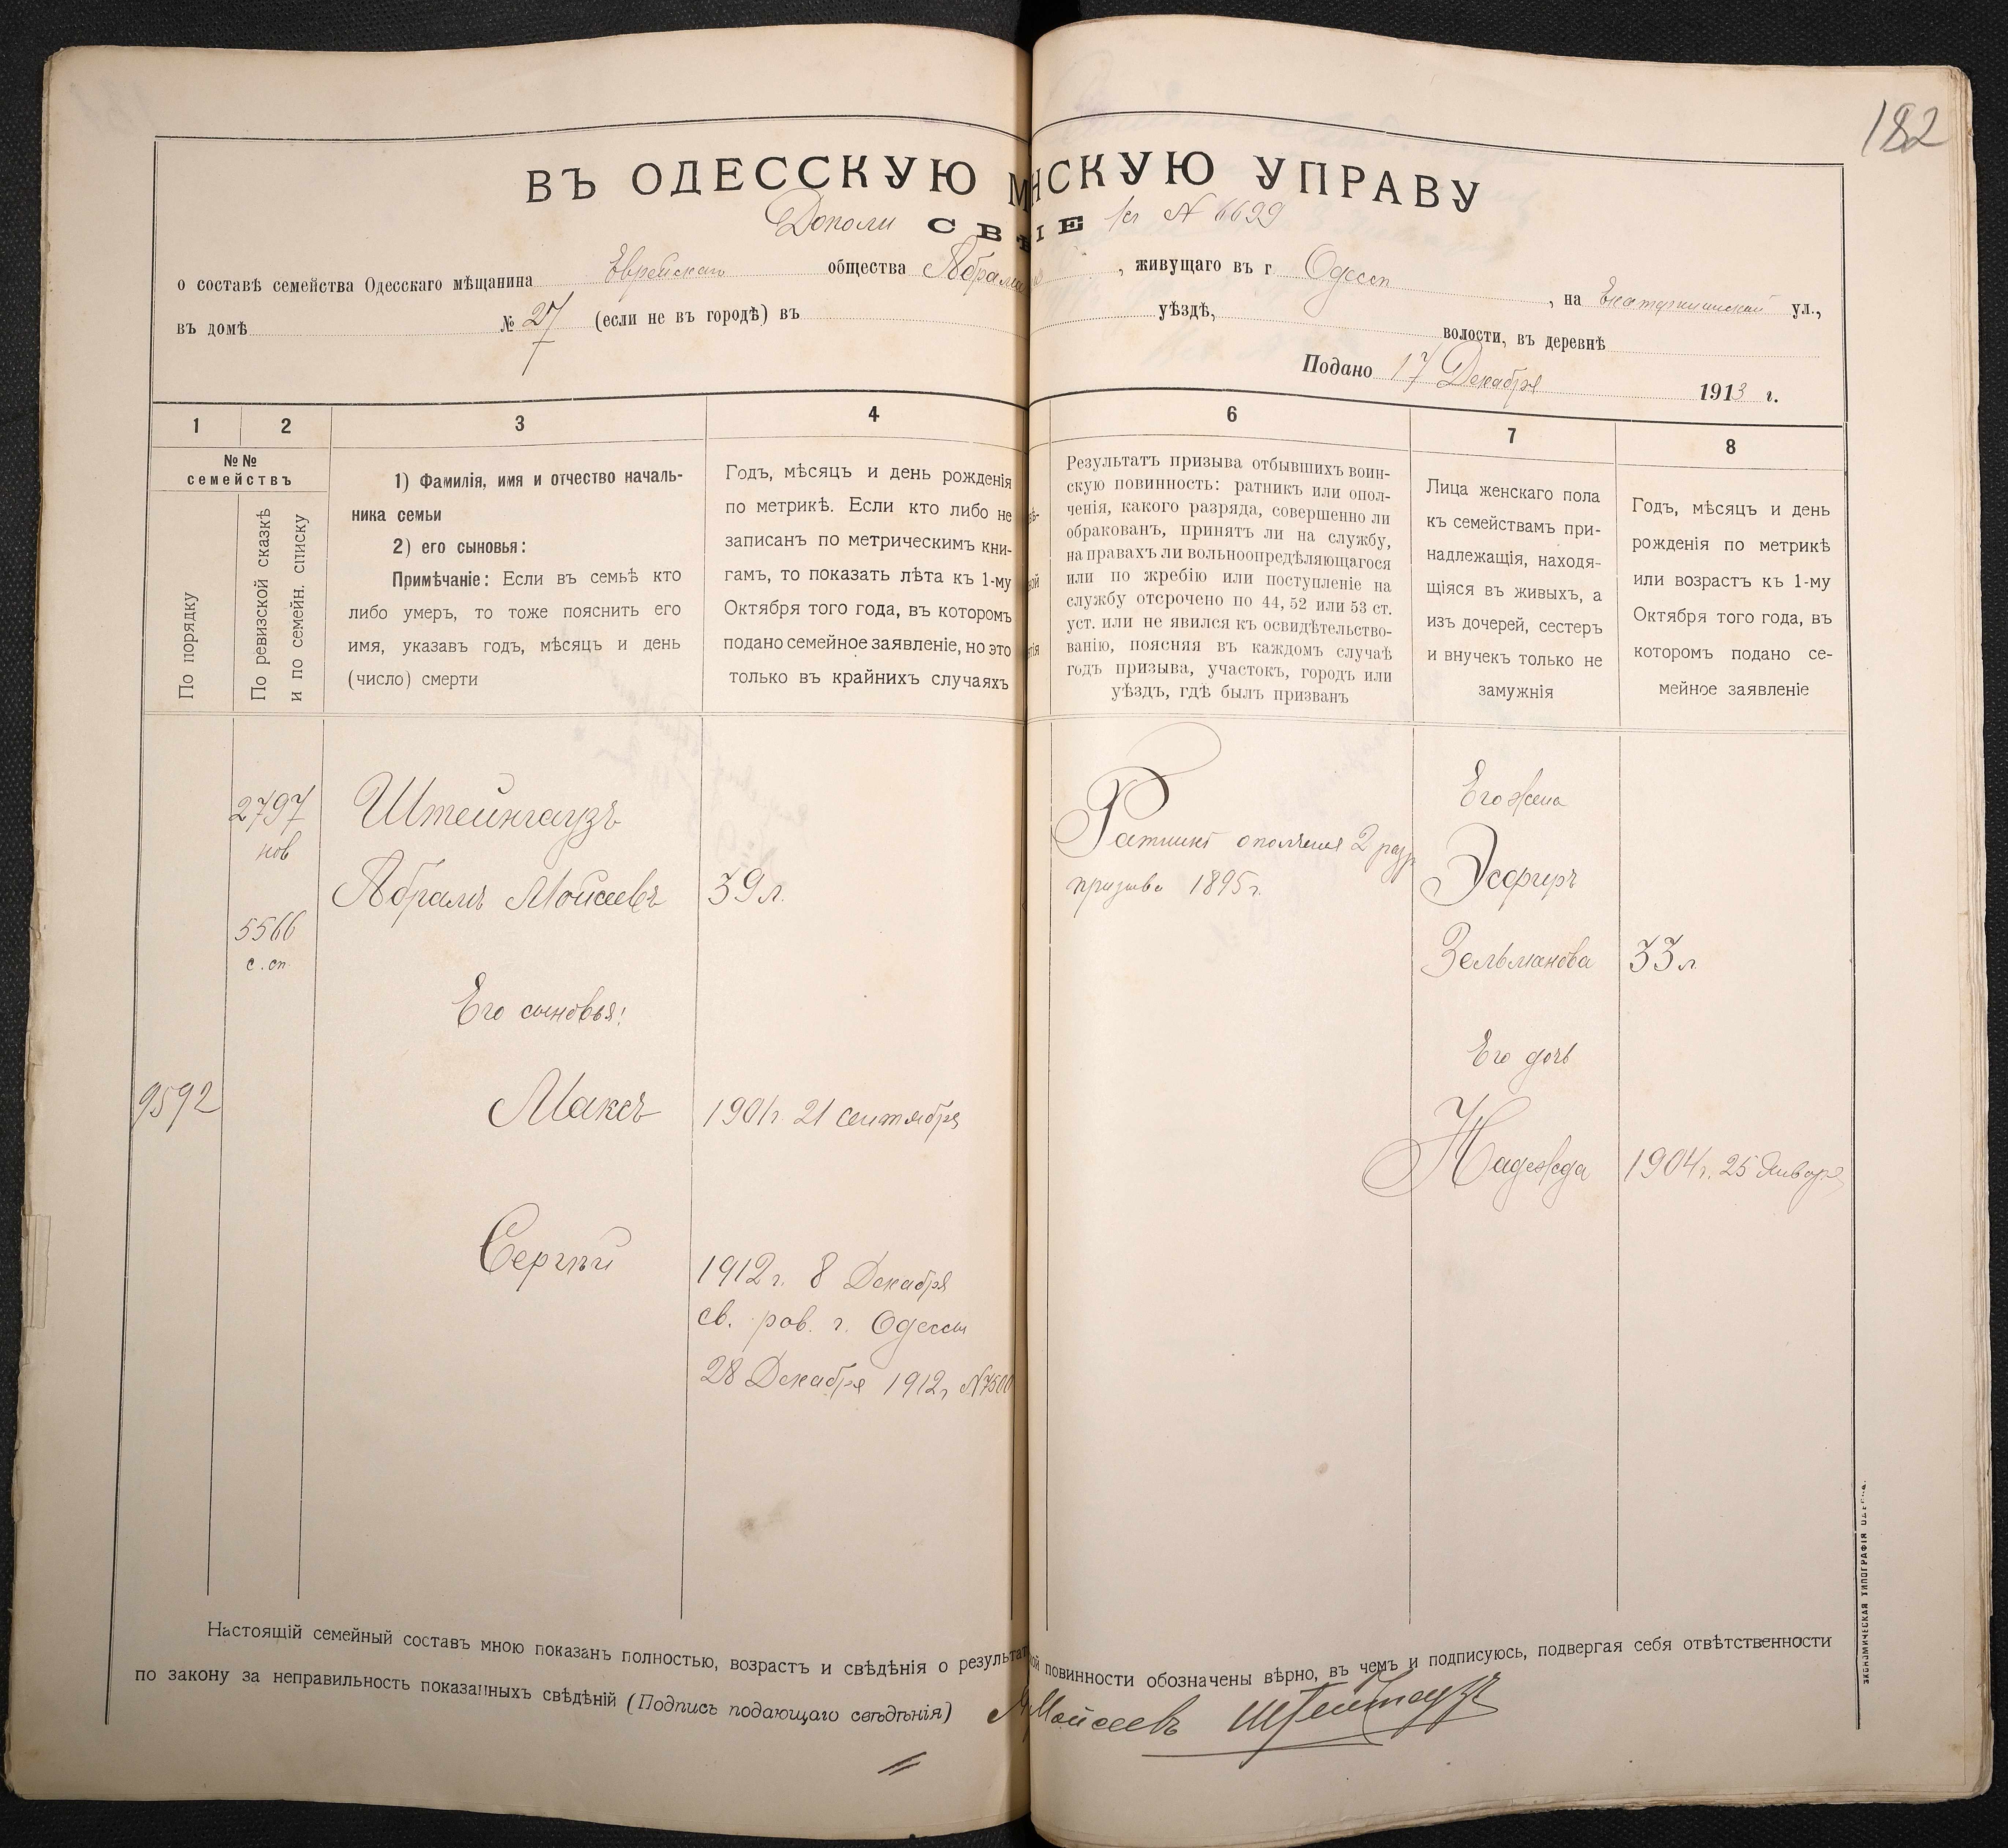 182
ВЪ ОДЕССКУЮ М НСКУЮ УПРАВУ
Дополн СВѢ ІЕ № 6699
о составѣ семейства Одесскаго мѣщанина Еврейскаго общества Абрама , живущаго въ г Одессѣ , на Екатерининской ул.,
въ домѣ № 27 (если не въ городѣ) въ уѣздѣ, волости, въ деревнѣ
Подано 17 Декабря 1913 г.
1 2 3 4 6 7 8
№№
семействъ
По порядку
По ревизской сказкѣ
и по семейн. списку
1) Фамилія, имя и отчество началь-
ника семьи
2) его сыновья:
Примѣчаніе: Если въ семьѣ кто
либо умеръ, то тоже пояснить его
имя, указавъ годъ, мѣсяцъ и день
(число) смерти
Годъ, мѣсяцъ и день рожденія
по метрикѣ. Если кто либо не
записанъ по метрическимъ кни-
гамъ, то показать лѣта къ 1-му
Октября того года, въ которомъ
подано семейное заявленіе, но это
только въ крайнихъ случаяхъ
Результатъ призыва отбывшихъ воин-
скую повинность: ратникъ или опол-
ченія, какого разряда, совершенно ли
обракованъ, принятъ ли на службу,
на правахъ ли вольноопредѣляющагося
или по жребію или поступленіе на
службу отсрочено по 44, 52 или 53 ст.
уст. или не явился къ освидѣтельство-
ванію, поясняя въ каждомъ случаѣ
годъ призыва, участокъ, городъ или
уѣздъ, гдѣ былъ призванъ
Лица женскаго пола
къ семействамъ при-
надлежащія, находя-
щіяся въ живыхъ, а
изъ дочерей, сестеръ
и внучекъ только не
замужнія
Годъ, мѣсяцъ и день
рожденія по метрикѣ
или возрастъ къ 1-му
Октября того года, въ
которомъ подано се-
мейное заявленіе
2797
нов
5566
с.сп
9592
Штейнгаузъ
Абрамъ Моисеевъ 39 л.
Его сыновья:
Максъ 1901 г. 21 сентября
Сергѣй 1912 г. 8 Декабря
св. рав. г. Одессы
28 Декабря 1912 г. № 7500
Ратникъ ополченія 2 разр
призыва 1895 г.
Его жена
Эсфирь
Зельманова 33 л
Его дочь
Надежда 1904 г. 25 Января
Настоящій семейный составъ мною показанъ полностью, возрастъ и свѣдѣнія о результат ой повинности обозначены вѣрно, въ чемъ и подписуюсь, подвергая себя отвѣтственности
по закону за неправильность показанныхъ свѣдѣній (Подпись подающаго свѣдѣнія) А Моисеевъ Штейнгаузъ
ЭКОНОМИЧЕСКАЯ ТИПОГРАФІЯ ОДЕССА.